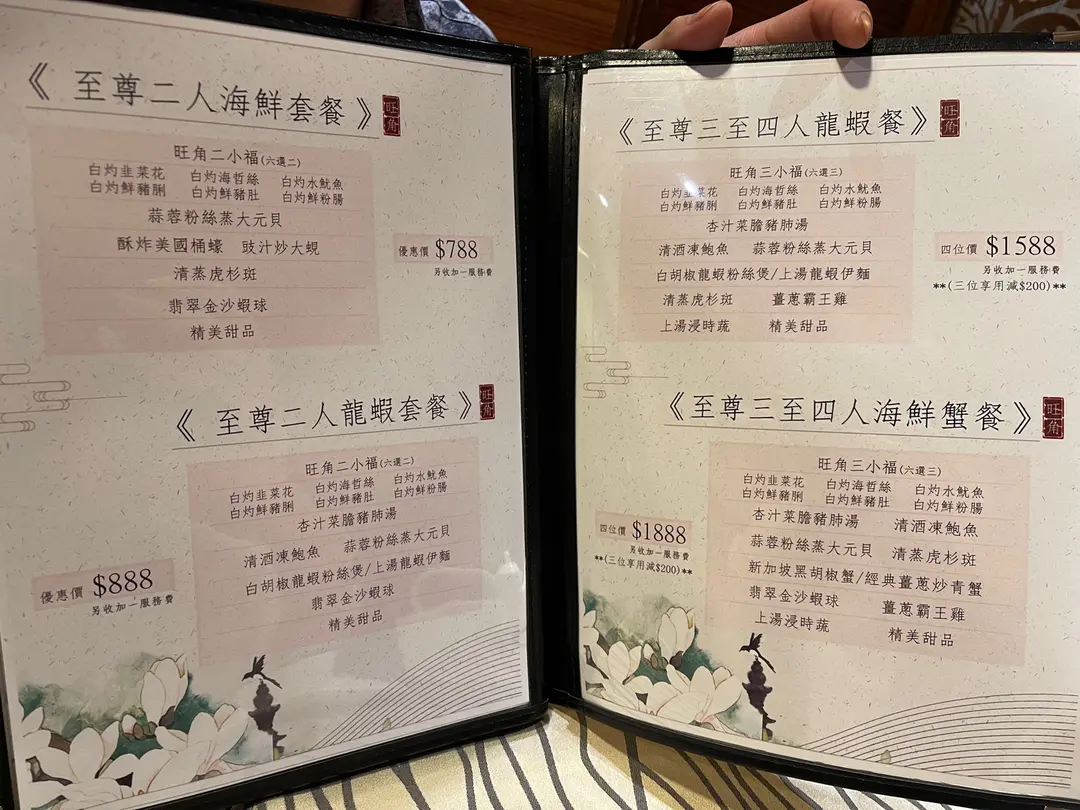 《 至尊二人海鮮套餐 》 旺角
旺角二小福(六選二)
白灼韭菜花 白灼海哲絲 白灼水魷魚
白灼鮮豬脷 白灼鮮豬肚 白灼鮮粉腸
蒜蓉粉絲蒸大元貝
酥炸美國桶蠔 豉汁炒大蜆
清蒸虎杉斑
翡翠金沙蝦球
精美甜品
優惠價 $788
另收加一服務費
《 至尊二人龍蝦套餐 》 旺角
旺角二小福(六選二)
白灼韭菜花 白灼海哲絲 白灼水魷魚
白灼鮮豬脷 白灼鮮豬肚 白灼鮮粉腸
杏汁菜膽豬肺湯
清酒凍鮑魚 蒜蓉粉絲蒸大元貝
白胡椒龍蝦粉絲煲/上湯龍蝦伊麵
翡翠金沙蝦球
精美甜品
優惠價 $888
另收加一服務費
《至尊三至四人龍蝦餐》 旺角
旺角三小福(六選三)
白灼韭菜花 白灼海哲絲 白灼水魷魚
白灼鮮豬脷 白灼鮮豬肚 白灼鮮粉腸
杏汁菜膽豬肺湯
清酒凍鮑魚 蒜蓉粉絲蒸大元貝
白胡椒龍蝦粉絲煲/上湯龍蝦伊麵
清蒸虎杉斑 薑蔥霸王雞
上湯浸時蔬 精美甜品
四位價 $1588
另收加一服務費
**(三位享用減$200)**
《至尊三至四人海鮮蟹餐》 旺角
旺角三小福(六選三)
白灼韭菜花 白灼海哲絲 白灼水魷魚
白灼鮮豬脷 白灼鮮豬肚 白灼鮮粉腸
杏汁菜膽豬肺湯 清酒凍鮑魚
蒜蓉粉絲蒸大元貝 清蒸虎杉斑
新加坡黑胡椒蟹/經典薑蔥炒青蟹
翡翠金沙蝦球 薑蔥霸王雞
上湯浸時蔬 精美甜品
四位價 $1888
另收加一服務費
**(三位享用減$200)**